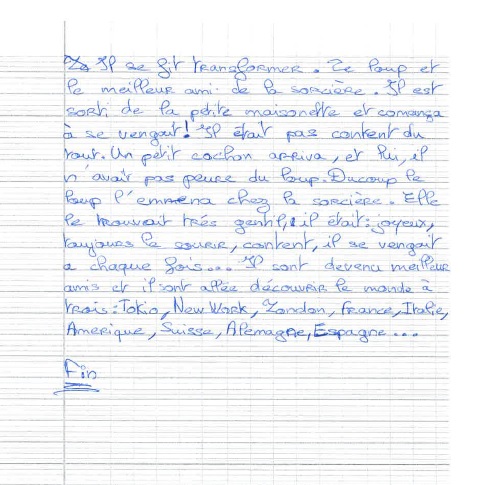 Il se fit transformer. Le loup et
le meilleur ami de la sorcière. Il est
sorti de la petite maisonette et comença
à se vengait! Il était pas content du
tout. Un petit cochon arriva, et lui, il
n'avait pas peure du loup. Ducoup le
loup l'emmena chez la sorcière. Elle
le trouvait trés gentil, il était: joyeux,
toujours le sourir, content, il se vengait
a chaque fois... Il sont devenu meilleur
amis et il sont allée découvrir le monde à
trois: Tokio, New Work, London, France, Italie,
Amerique, Suisse, Alemagne, Espagne...
Fin